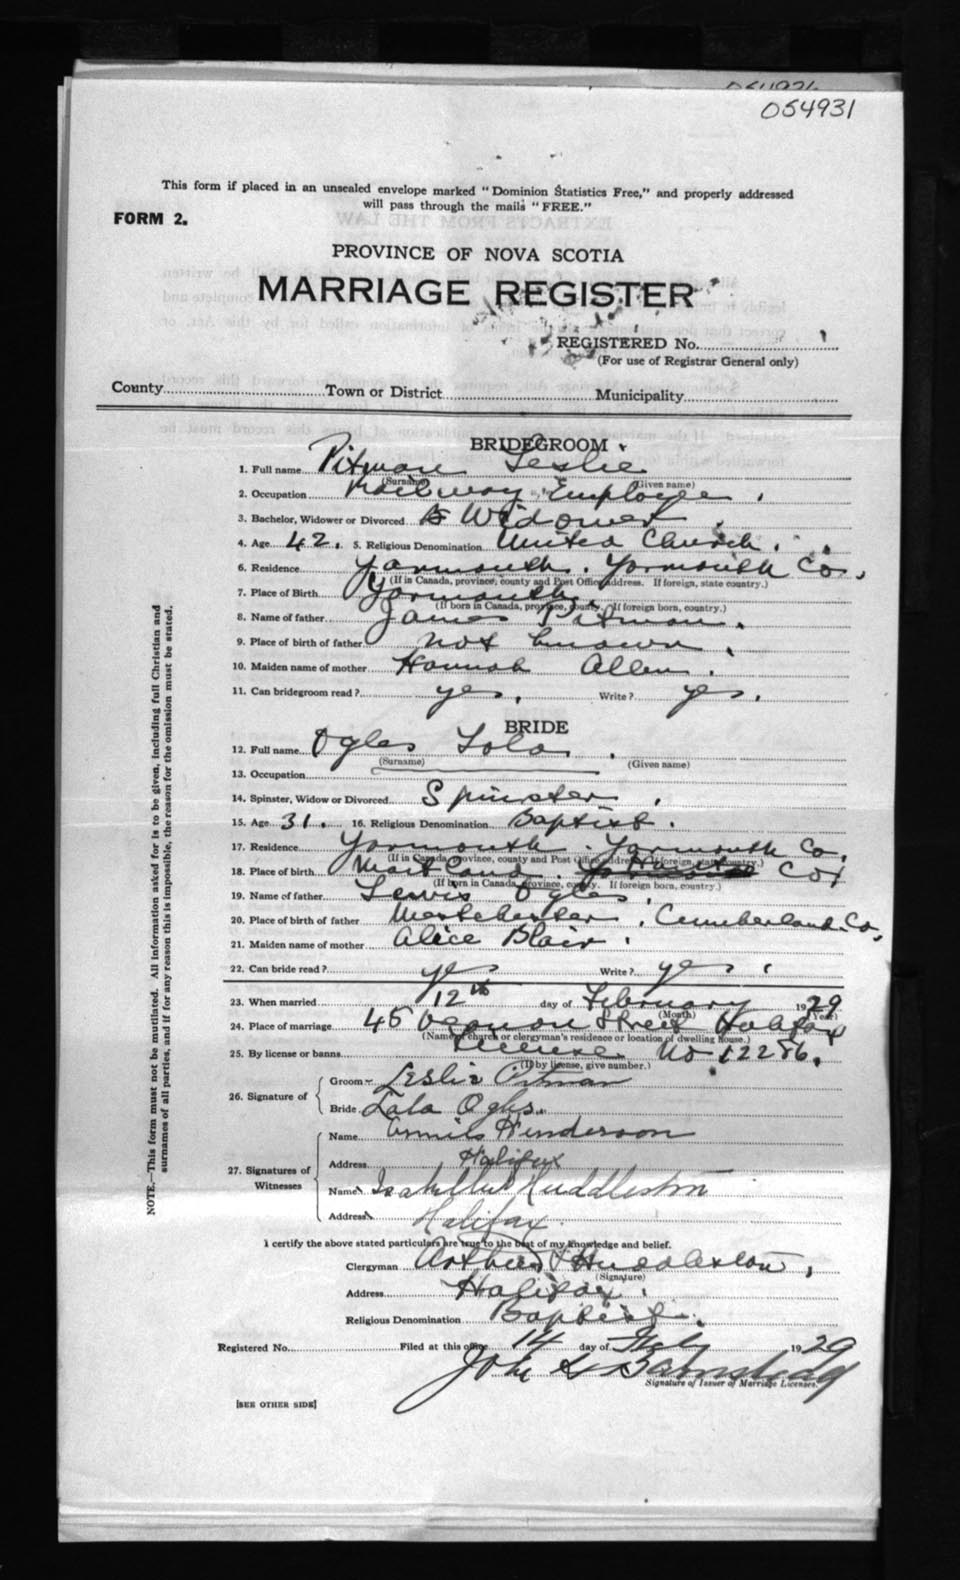 054931
This form if placed in an unsealed envelope marked "Dominion Statistics Free," and properly addressed
will pass through the mails "FREE."
FORM 2.
PROVINCE OF NOVA SCOTIA
MARRIAGE REGISTER
REGISTERED No.
(For use of Registrar General only)
County Town or District Municipality
BRIDEGROOM
1. Full name Pitman Leslie
(Surname) (Given name)
2. Occupation Railway Employee
3. Bachelor, Widower or Divorced Widower
4. Age 42. 5. Religious Denomination United Church.
6. Residence Yarmouth. Yarmouth Co.
(If in Canada, province, county and Post Office address. If foreign, state country.)
7. Place of Birth Yarmouth.
(If born in Canada, province, county. If foreign born, country.)
8. Name of father James Pitman.
9. Place of birth of father not known.
10. Maiden name of mother Hannah Allen.
11. Can bridegroom read? yes. Write? yes.
BRIDE
12. Full name Ogles Lola.
(Surname) (Given name)
13. Occupation
14. Spinster, Widow or Divorced Spinster.
15. Age 31. 16. Religious Denomination Baptist.
17. Residence Yarmouth. Yarmouth Co.
(If in Canada, province, county and Post Office address. If foreign, state country.)
18. Place of birth Maitland. Hants Co.
(If born in Canada, province, county. If foreign born, country.)
19. Name of father Lewis Ogles.
20. Place of birth of father Westchester, Cumberland Co.
21. Maiden name of mother Alice Blair.
22. Can bride read? yes Write? yes.
23. When married 12th day of February 1929
(Month) (Year)
24. Place of marriage 45 Vernon Street Halifax
(Name of church or clergyman's residence or location of dwelling house.)
25. By license or banns License No 12286.
(If by license, give number.)
26. Signature of
Groom Leslie Pitman
Bride Lola Ogles.
27. Signatures of Witnesses
Name Henderson
Address Halifax
Name Isabelle Huddleston
Address Halifax.
I certify the above stated particulars are true to the best of my knowledge and belief.
Clergyman Arthur Huddleston,
(Signature)
Address Halifax.
Religious Denomination Baptist.
Registered No. Filed at this office 14 day of Feby 1929
John
Signature of Issuer of Marriage Licenses.
[SEE OTHER SIDE]
NOTE.—This form must not be mutilated. All information asked for is to be given, including full Christian and
surnames of all parties, and if for any reason this is impossible, the reason for the omission must be stated.